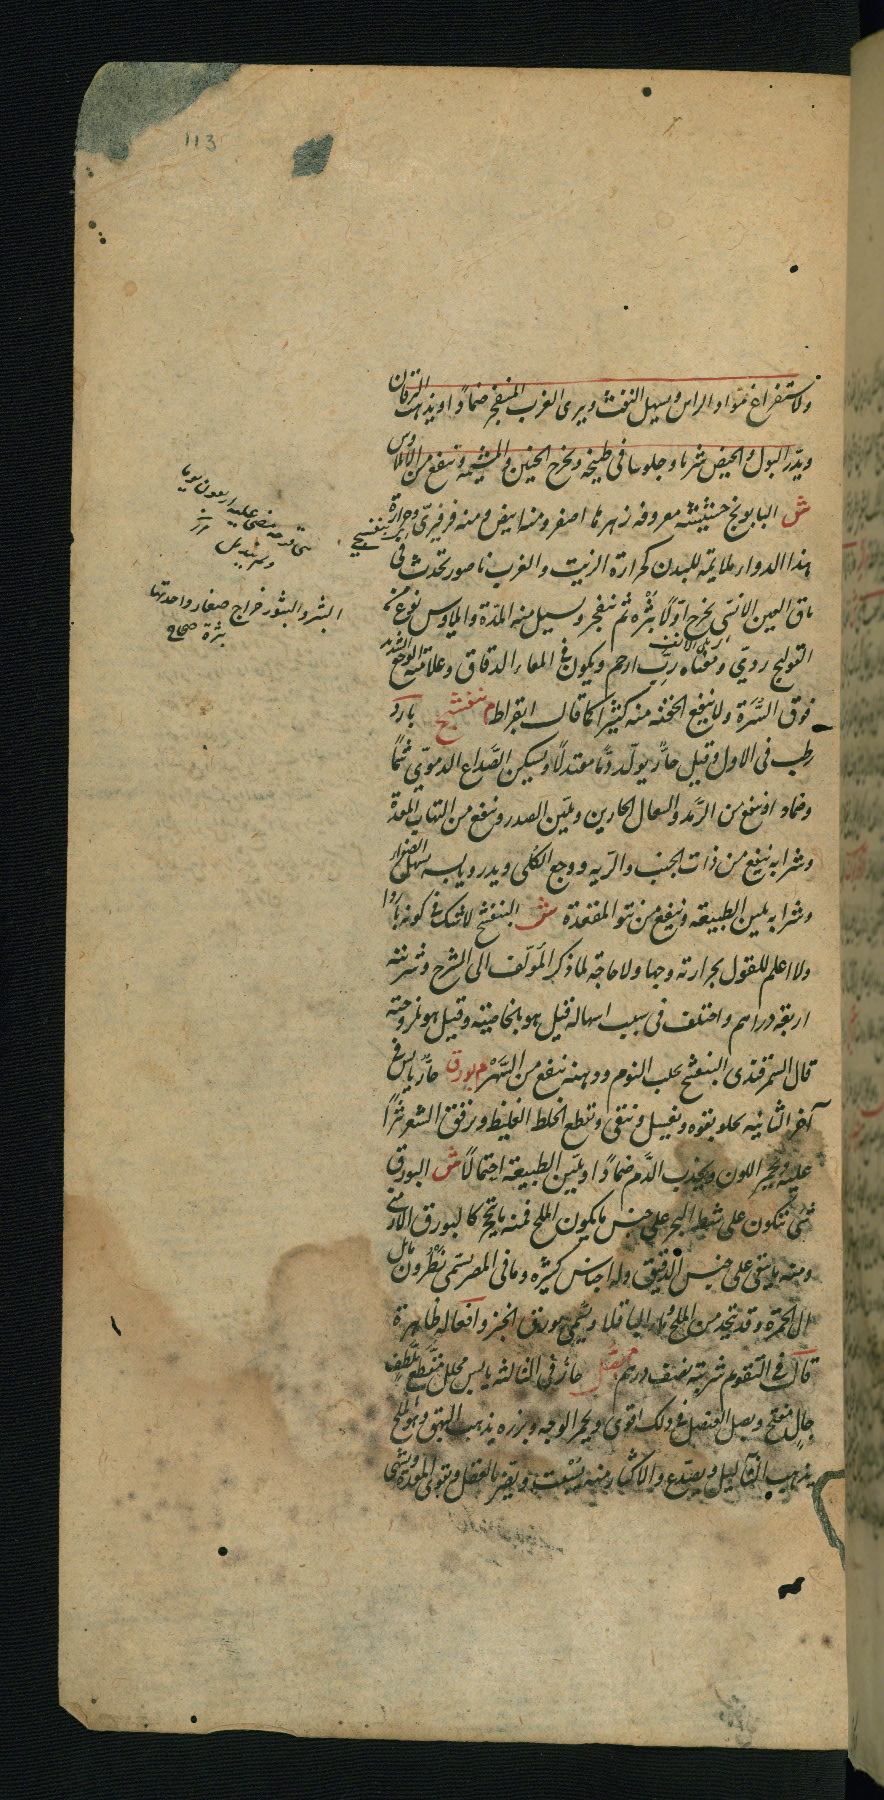 113
ولاستفراغ مواد الراس ويسهل النفث ويبرى الغرب المنفجر ضمادا ويذهب اليرقان
ويدر البول والحيض شربا وجلوسا فى طبيخه ويخرج الجنين والمشيمة وينفع من ايلاوس
ش البابونج حشيشة معروفة زهرها اصفر ومنه ابيض ومنه فرفيرى وحرارة
هذا الدواء ملايمة للبدن كحرارة الزيت والغرب ناصور تحدث فى
ماق العين الانسى يخرج اولا بثره ثم ينفجر ويسيل منه المدة وايلاوس نوع من
القولنج ردى ومعناه رب ارحم ويكون فى المعاء الدقاق وعلامته الوجع الشديد
فوق السرة ولا ينفع الحقنه منه كثيرا كما قال ابقراط م بنفشج بارد
رطب فى الاول وقيل حار يولد دما معتدلا ويسكن الصداع الدموى شما
وضمادا وينفع من الرمد والسعال الحارين ويلين الصدر وينفع من التهاب المعدة
وشرابه ينفع من ذات الجنب والريه ووجع الكلى ويدر ويابسه يسهل الصفراء
وشرابه يلين الطبيعه وينفع من نتو المقعدة ش البنفشج لاشك فى كونه باردا
ولا اعلم للقول بحرارته وجها ولا حاجة لما ذكر المؤلف الى الشرح وشربته
اربعة دراهم واختلف فى سبب اسهاله قيل هو بالخاصية وقيل هو بلزوجته
قال السمرقندى البنفشج يجلب النوم ودهنه ينفع من السهر م بورق حار يابس فى
آخر الثانيه يجلو بقوه ويغسل وينقى ويقطع الخلط الغليظ ويرقق الشعر نثرا
عليه ويحمر اللون ويجذب الدم ضمادا ويلين الطبيعة احتمالا ش البورق
شى يتكون على شط البحر على جنس ما يكون الملح فمنه ما يتحجر كالبورق الارمنى
ومنه ما يبقى على جنس الدقيق وله اجناس كثيره وما فى المصر يسمى نطرون مايل
الى الحمرة وقد يتخذ من الملح وماء الباقلا ويسمى بورق الخبز وافعاله ظاهرة
قال فى التقويم شربته نصف درهم م بصل حار فى الثالثه يابس محلل مقطع ملطف
جال مفتح وبصل العنصل فى ذلك اقوى ويحمر الوجه وبزره يذهب البهق وهو بالملح
يذهب الثآليل ويصدع والاكثار منه يسبت ويضر بالعقل ويقوى المعدة ويشهى
البثر والبثور خراج صغار واحدتها
بثرة صحاح